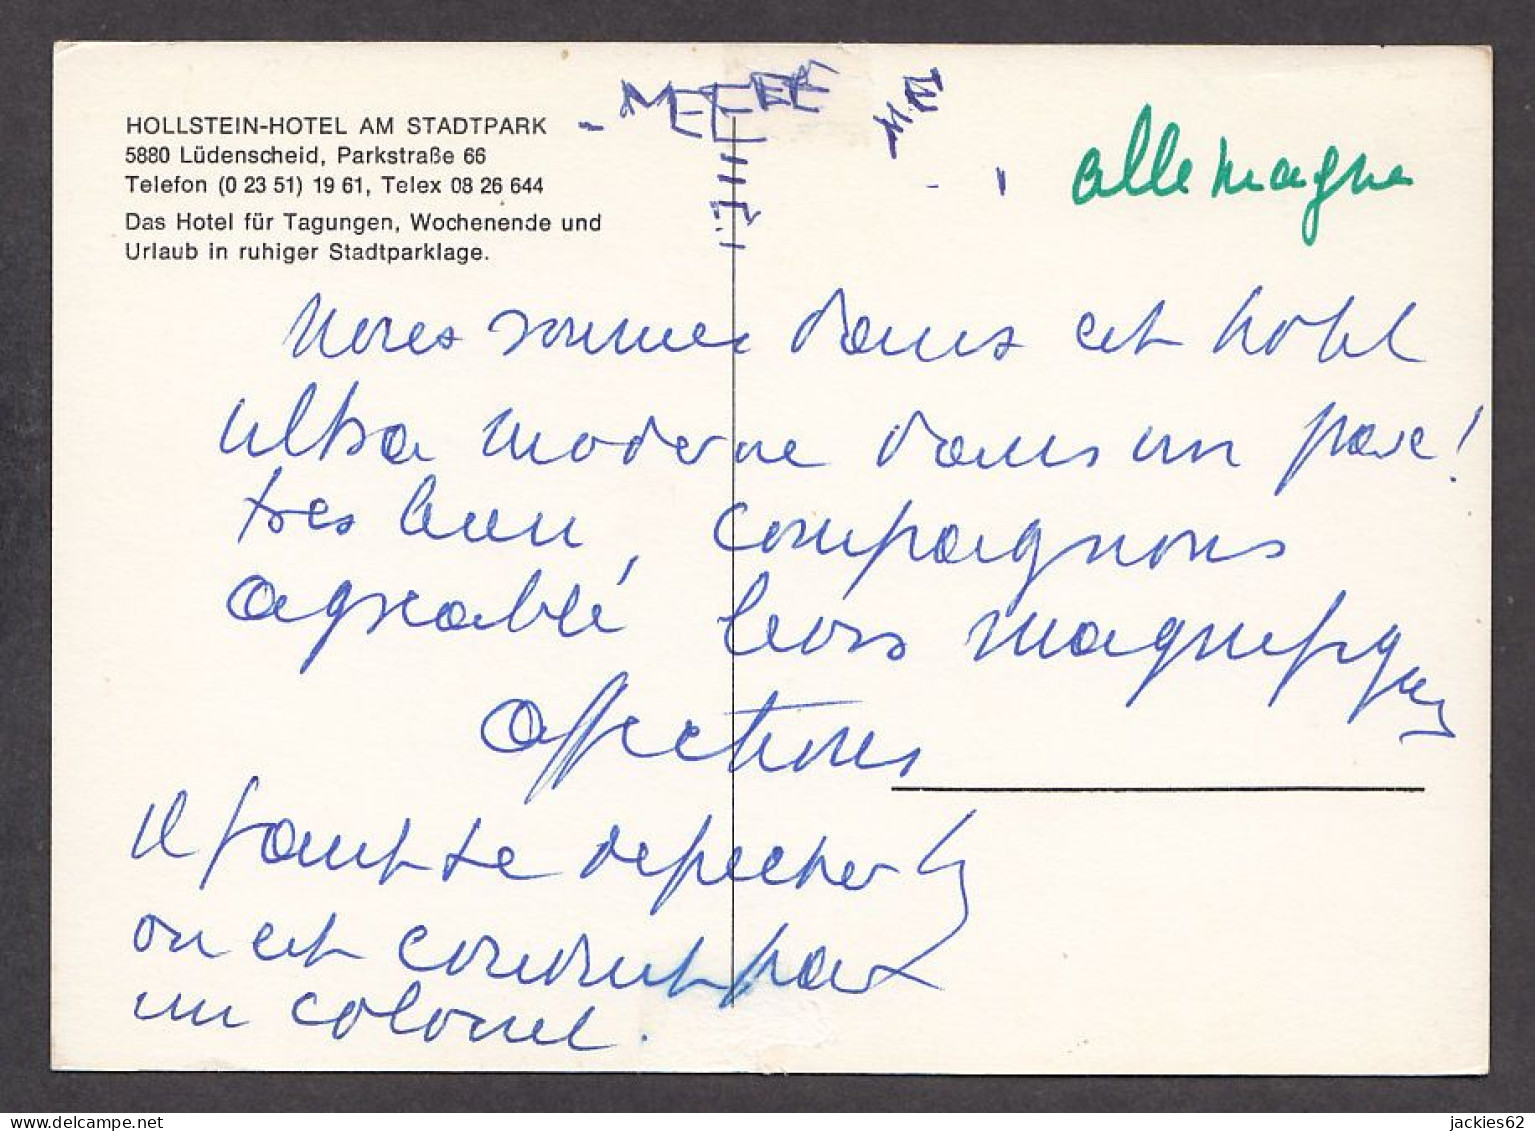 HOLLSTEIN-HOTEL AM STADTPARK
5880 Lüdenscheid, Parkstraße 66
Telefon (0 23 51) 19 61, Telex 08 26 644
Das Hotel für Tagungen, Wochenende und
Urlaub in ruhiger Stadtparklage.
allemagne
Nous sommes dans cet hotel
ultra moderne dans un parc!
tres bien, compagnons
agreable bois magnifiques
affections
Il faut se depecher
on est conduit par
un colonel.
delcampe.net
jackies62